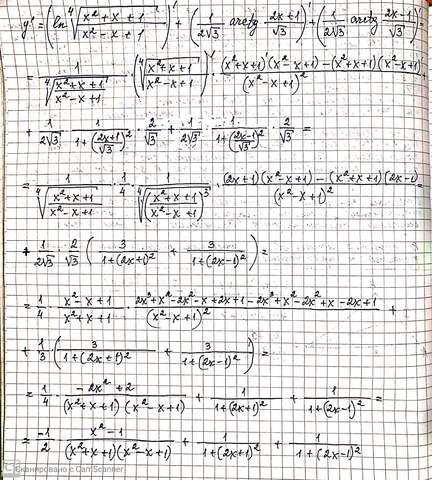 y' = (ln ⁴√((x²+x+1)/(x²-x+1)))' + (1/(2√3) arctg (2x+1)/√3)' + (1/(2√3) arctg (2x-1)/√3)' =
= 1/⁴√((x²+x+1)/(x²-x+1)) · (⁴√((x²+x+1)/(x²-x+1)))' · ((x²+x+1)'(x²-x+1)-(x²+x+1)(x²-x+1)')/(x²-x+1)² +
+ 1/(2√3) · 1/(1+((2x+1)/√3)²) · 2/√3 + 1/(2√3) · 1/(1+((2x-1)/√3)²) · 2/√3 =
= 1/⁴√((x²+x+1)/(x²-x+1)) · 1/4 · 1/⁴√(((x²+x+1)/(x²-x+1))³) · ((2x+1)(x²-x+1)-(x²+x+1)(2x-1))/(x²-x+1)² =
+ 1/(2√3) · 2/√3 (3/(1+(2x+1)²) + 3/(1+(2x-1)²)) =
= 1/4 · (x²-x+1)/(x²+x+1) · (2x³+x²-2x²-x+2x+1-2x³+x²-2x²+x-2x+1)/(x²-x+1)² +
+ 1/3 · (3/(1+(2x+1)²) + 3/(1+(2x-1)²)) =
= 1/4 · (-2x²+2)/((x²+x+1)(x²-x+1)) + 1/(1+(2x+1)²) + 1/(1+(2x-1)²) =
= -1/2 · (x²-1)/((x²+x+1)(x²-x+1)) + 1/(1+(2x+1)²) + 1/(1+(2x-1)²)
CS Сканировано с CamScanner